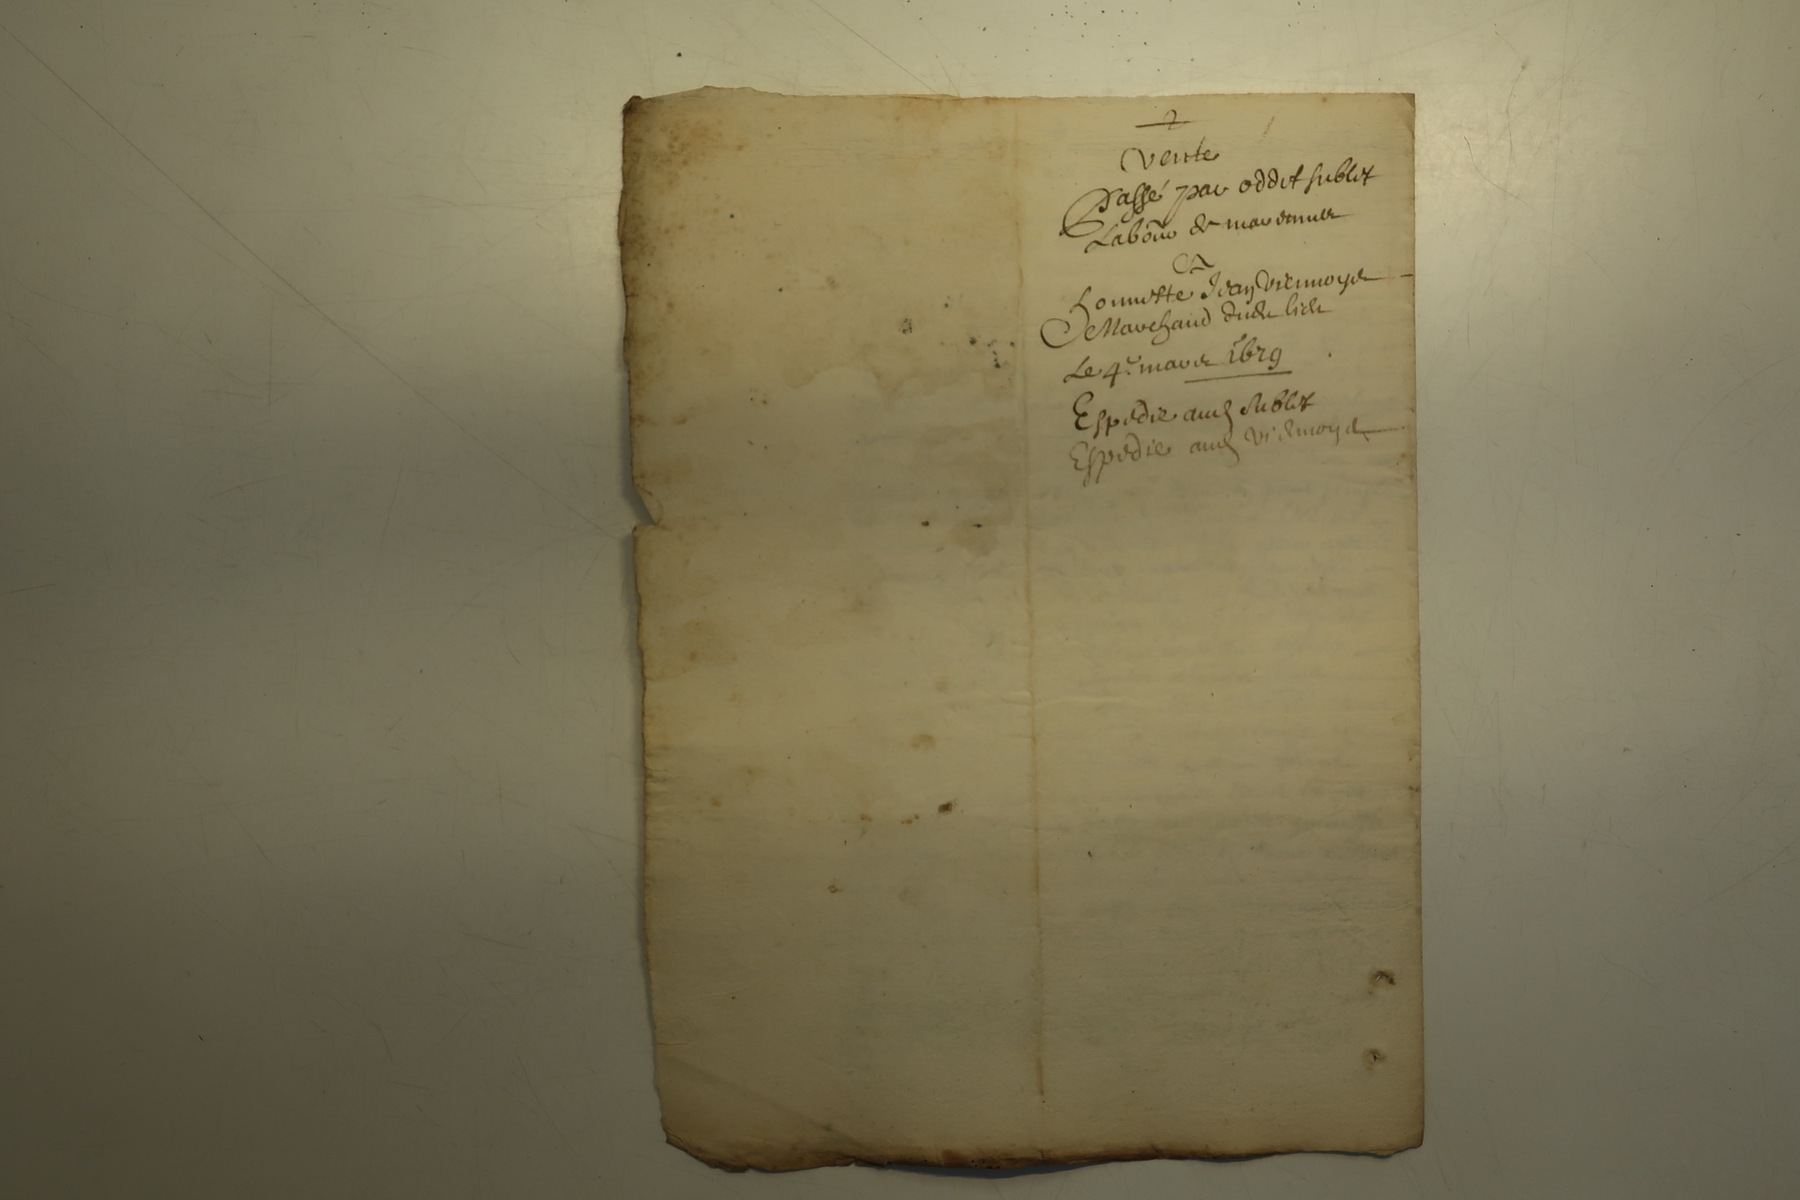 2
Vente
Passé par oddet sublet
Labou͠r de
A
honneste Jean Viennoys
Marchand dudit lieu
Le 4e mars 1679
Espedie aud sublet
Espedie aud Viennoys